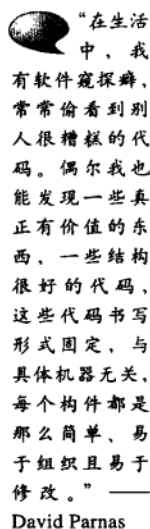 “在生活
中，我
有软件窥探癖，
常常偷看到别
人很糟糕的代
码。偶尔我也
能发现一些真
正有价值的东
西，一些结构
很好的代码，
这些代码书写
形式固定，与
具体机器无关，
每个构件都是
那么简单、易
于组织且易于
修改。” ——
David Parnas